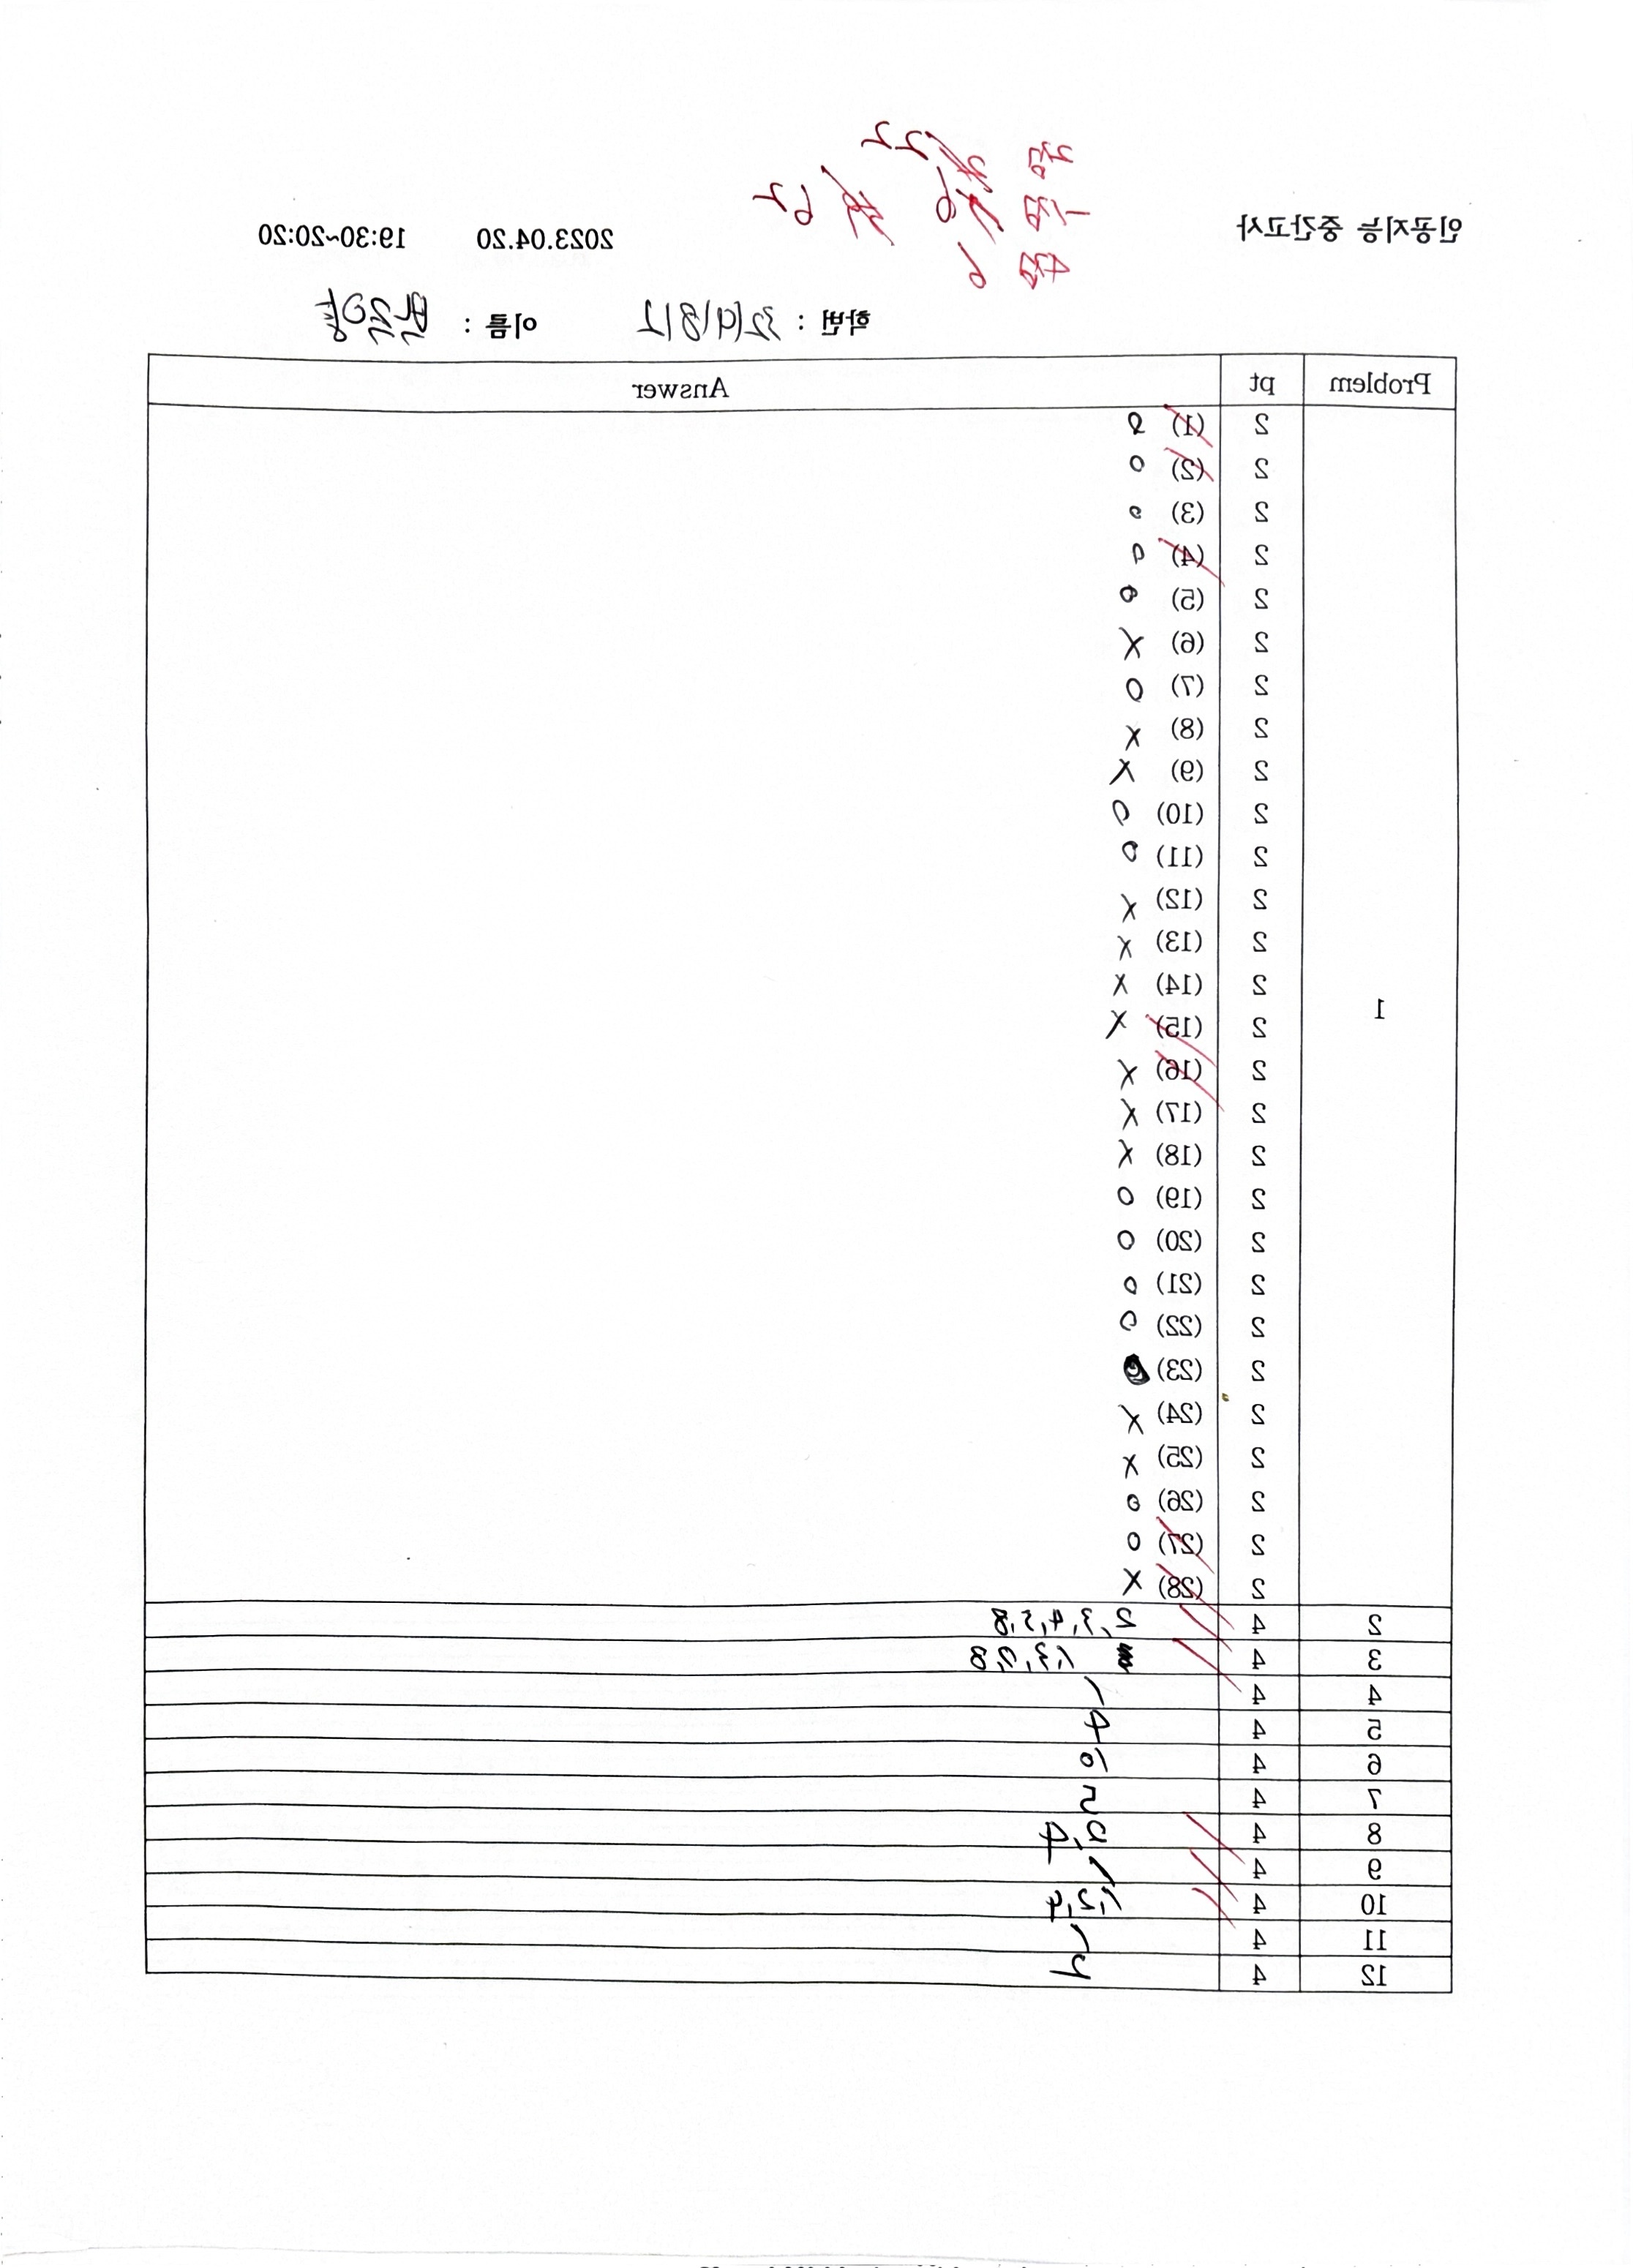 인공지능 중간고사 2023.04.20 19:30~20:20
2점 22
1점 6 62
4점 6
학번 : 이름 :
Problem pt Answer
1
2 (1) O
2 (2) O
2 (3) O
2 (4) O
2 (5) O
2 (6) X
2 (7) O
2 (8) X
2 (9) X
2 (10) O
2 (11) O
2 (12) X
2 (13) X
2 (14) X
2 (15) X
2 (16) X
2 (17) X
2 (18) X
2 (19) O
2 (20) O
2 (21) O
2 (22) O
2 (23)
2 (24) X
2 (25) X
2 (26) O
2 (27) O
2 (28) X
2 4 2,3,4,5,8
3 4 1,3,5,8
4 4 1
5 4 4
6 4 10
7 4 5
8 4 2,4
9 4 1
10 4 1,2,4
11 4 1
12 4 4